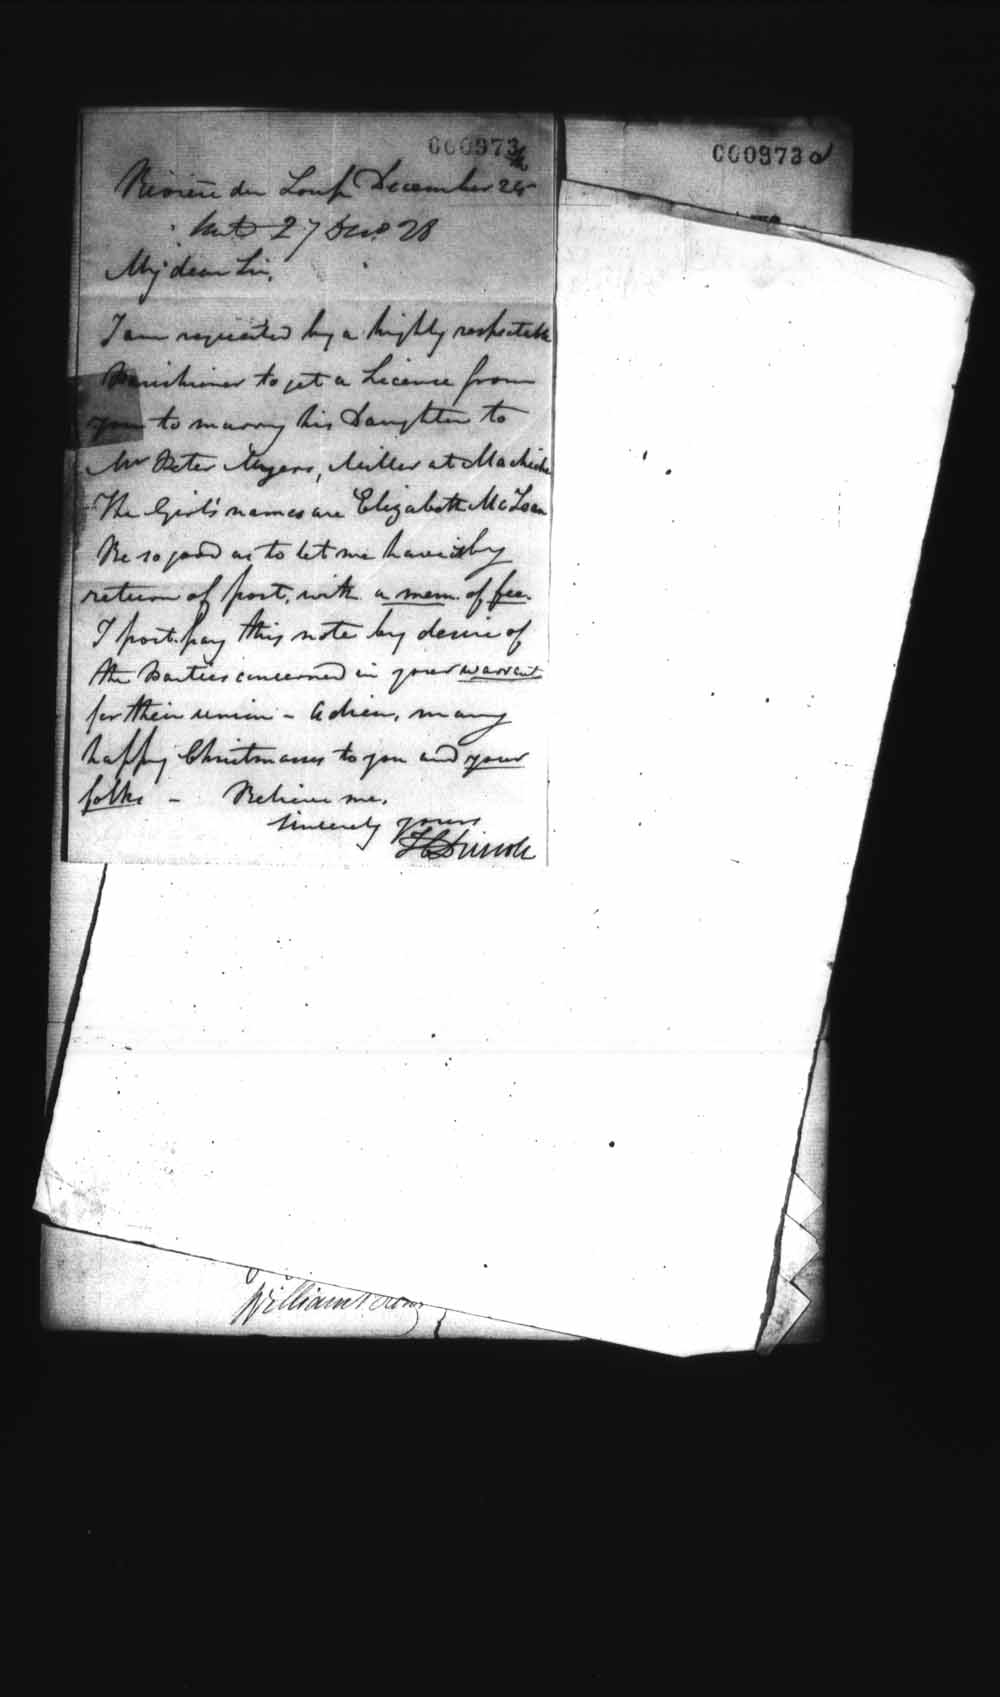 000973
000973 d
Rivière du Loup December 24
27 Decr 28
My dear Sir,
I am requested by a highly respectable
Parishioner to get a Licence from
you to marry his Daughter to
Mr Peter Myers, Miller at Machiche
The Girl's names are Elizabeth McLean
Be so good as to let me have it by
return of post, with a mem. of fee.
I post-pay this note by desire of
the Parties concerned in your warrant
for their union - Adieu, many
happy Christmasses to you and your
folks - Believe me,
sincerely yours
William